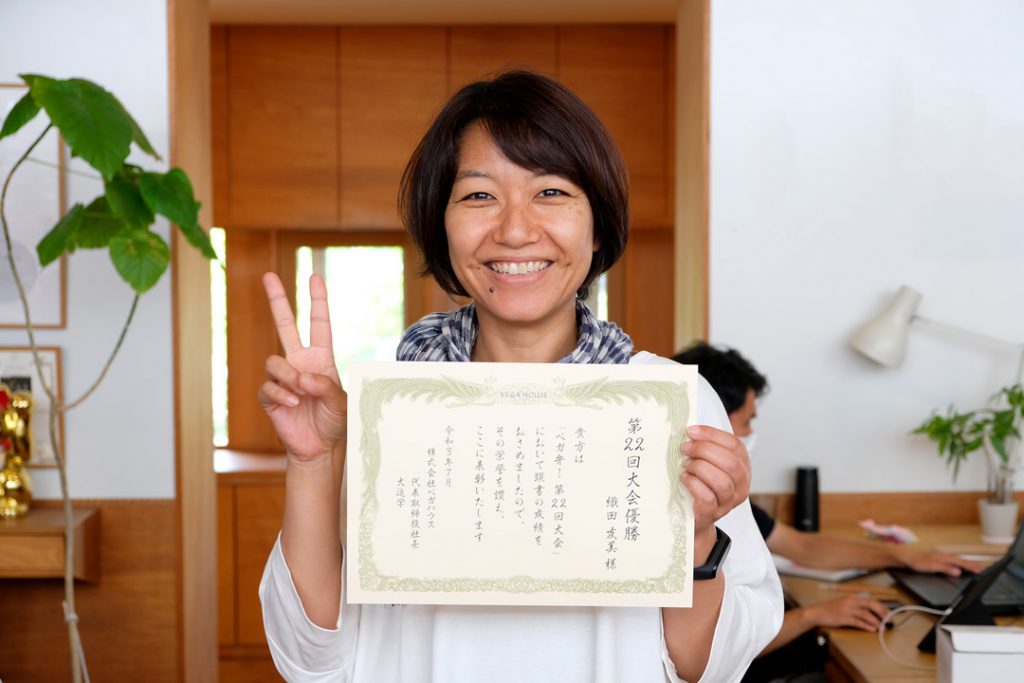 VEGA HOUSE
第22回大会優勝
織田 友美 様
貴方は
「ベガ弁！第22回大会」
において頭書の成績を
おさめましたので、
その栄誉を讃え、
ここに表彰いたします
令和3年7月
株式会社ベガハウス
代表取締役社長
大迫学